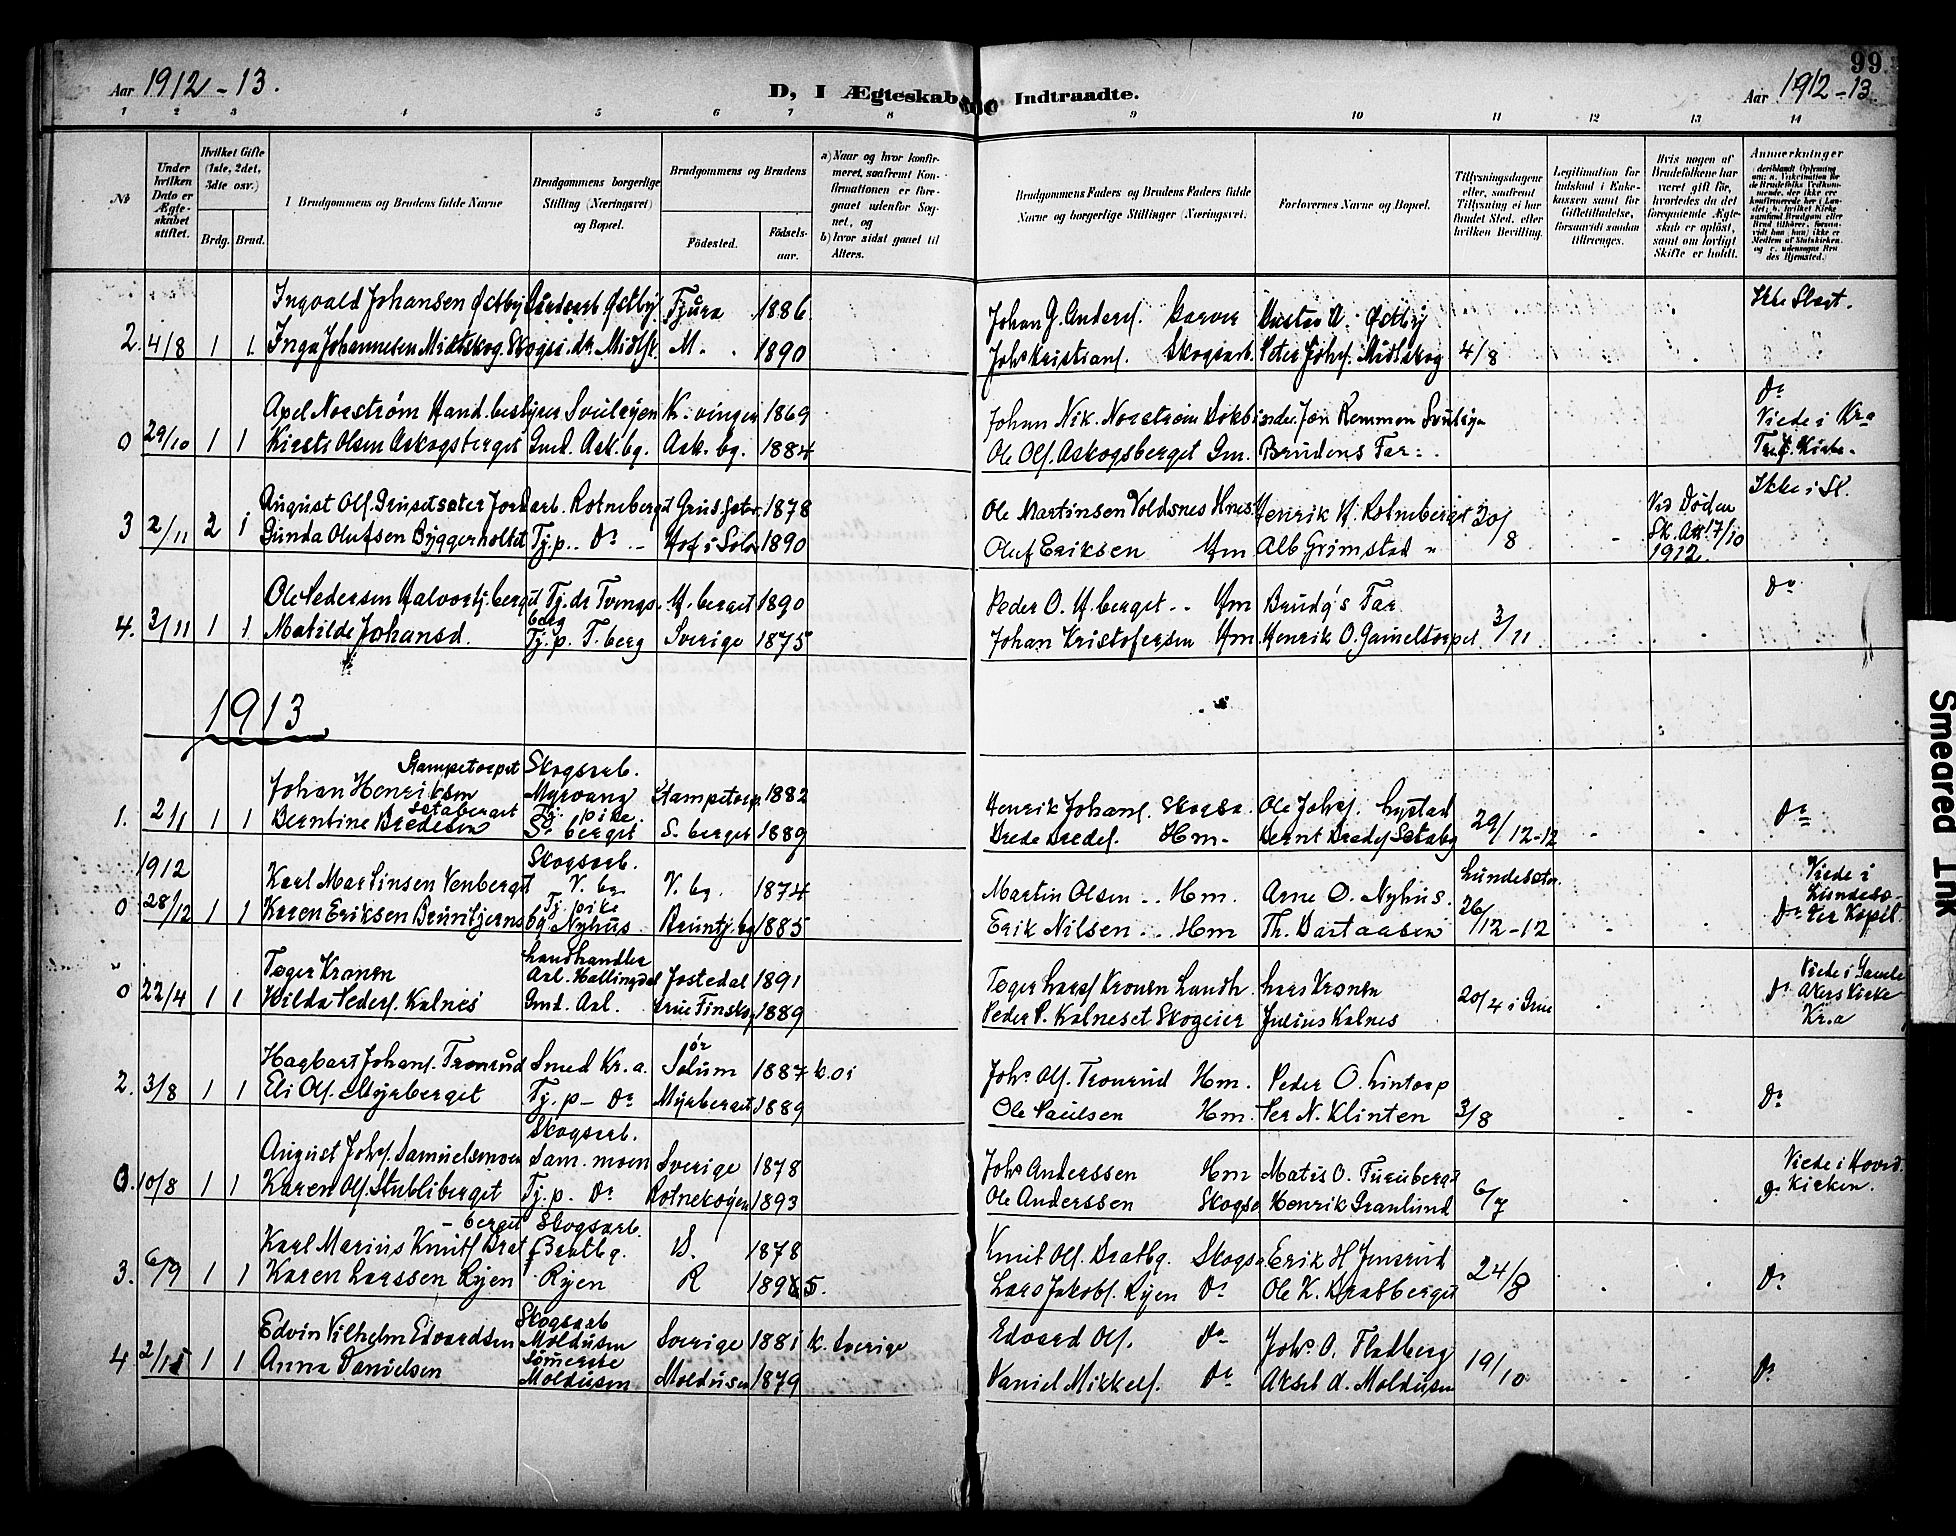 99
Aar 1912-13. D, I Ægteskab Indtraadte. Aar 1912-13.
1 2 3 4 5 6 7 8 9 10 11 12 13 14
No
Under hvilken Dato er Ægteskabet stiftet.
Hvilket Gifte (1ste, 2det, 3die osv.)
Brdg. Brud.
Brudgommens og Brudens fulde Navne
Brudgommens borgerlige Stilling (Næringsvei) og Bopæl.
Brudgommens og Brudens
Fødested. Fødsels-aar.
a) Naar og hvor konfirmeret, saafremt Konfirmationen er foregaaet udenfor Sognet, og
b) hvor sidst gaaet til Alters.
Brudgommens Faders og Brudens Faders fulde Navne og borgerlige Stillinger (Næringsvei).
Forlovernes Navne og Bopæl.
Tillysningsdagene eller, saafremt Tillysning ei har fundet Sted, efter hvilken Bevilling.
Legitimation for Indskud i Enkekassen samt for Giftetilladelse, forsaavidt saadan tiltrænges.
Hvis nogen af Brudefolkene har været gift før, hvorledes da det foregaaende Ægteskab er opløst, samt om lovligt Skifte er holdt.
Anmærkninger
2. 4/8 1 1 Ingvald Johansen Østby Østby. Tjura 1886 Johan G. Anders. Garver Gustav A. Østby Ikke Slægt.
Inga Johannesen Midtskog M. 1890 Johs Kristians. Skogsarb. Peter Johs. Midtskog 4/8
0 29/10 1 1 Axel Norstrøm Hand.bestyrer Svulryen K.vinger 1869 Johan Nik. Norstrøm Jon Remmen Svulryen Do Viede i Kra
Kirsti Olsen Askogsberget Gmd. Ask.bg. Ask.bg. 1884 Ole Ols. Askogsberget Gm. Brudens Far. Tref. Kirke.
3 2/11 2 1 August Ols. Grusetsæter Jordarb. Rotneberget 1878 Ole Martinsen Voldsnes Henrik H. Rotneberget 20/8 Ved Døden Sk.Att. 17/10 1912. Ikke i Sl.
Gunda Olufsen Byggerholtet Tj.p. Do Hof i Solør 1890 Oluf Eriksen Hm Alb Grimstad
4. 3/11 1 1 Ole Pedersen Halvortj.berget Tj.dr Tvengsberg H.berget 1890 Peder O. H.berget Hm Brudg's Far 3/11 Do
Matilde Johansd. Tj.p. T.berg Sverige 1875 Johan Kristofersen Hm. Henrik O. Gameltorpet
1913
1. 2/1 1 1 Johan Henriksen Stampetorpet Skogsarb. Myrvang Stampetorp 1882 Henrik Johans. Skogsa. Ole Johs. Lystad 29/12-12 Do
Berntine Bredesen Sætaberget Tj.pike S.berget S.berget 1889 Brede Bredes. Hm. Bernt Bredes Sætabg
1912
0 28/12 1 1 Karl Martinsen Venberget Skogsarb. V.bg V.bg. 1874 Martin Olsen Hm. Arne O. Nyhus. Lundesæter. 26/12-12 Do Viede i Lundesæter Kapel.
Karen Eriksen Bruntjernsbg Tj.pike Nyhus Bruntj.bg 1885 Erik Nilsen Hm Th. Bartaasen
0 22/4 1 1 Tøger Kronen Landhandler Aal. Hallingdal Jostedal 1891 Tøger Larss Kronen Landh. Lars Kronen 20/4 i Grue Do Viede i Gamle Akers Kirke Kr.a
Hilda Peders. Kalnes Gmd. Aal. Grue Finskog 1889 Peder P. Kalneset Skogeier Julius Kalnes
2. 3/8 1 1 Hagbart Johans. Tronrud Smed Kr.a. Solum 1887 Johs Ols. Tronrud Hm. Peder O. Lintorp 3/8 Do
Eli Ols. Myrberget Tj.p- Do Myrberget 1889 Ole Paulsen Hm. Per N. Klinten
0. 10/8 1 1 August Johs. Samuelsmoen Skogsarb. Sam.moen Sverige 1878 Johs Anderssen Hm Matis O. Furuberg 6/7 Do Viede i Hovedkirken.
Karen Ols. Stubliberget Tj.p. Do Rotnekojen 1893 Ole Anderssen Skogsa Henrik Granlund
3. 6/9 1 1 Karl Marius Knuts Bratberget Skogsarb. Bratbg. B. 1878 Knut Ols. Bratbg. Skogsa Erik H Jensrud 24/8 Do
Karen Larssen Ryen Ryen R 1895. Lars Jakobs. Ryen Do Ole K. Bratberget
4 2/11 1 1 Edvin Vilhelm Edvardsen Skogsarb Moldusen Sverige 1881 k. Sverige Edvard Ols. Do Johs O. Fladberg 19/10 Do
Anna Danielsen Moldusen Moldusen 1879 Daniel Mikkels. Do Aksel d. Moldusen
Smeared Ink